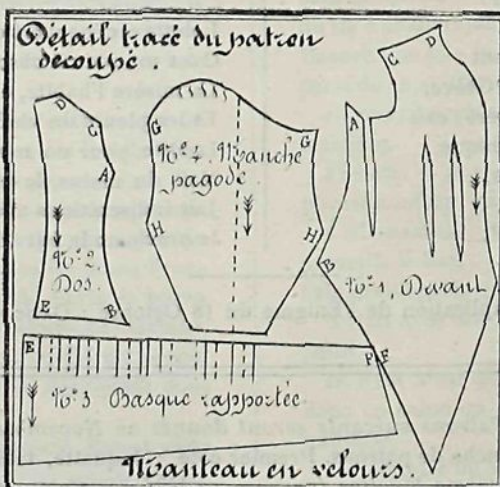 Détail tracé du patron
découpé.
D
C
A
N.º 2
Dos.
E
B
G
G
N.º 4 Manche
pagode
H
H
C
D
A
B
N.º 1, Devant
F
E
E
F
N.º 3 Basque rapportée
Manteau en velours.